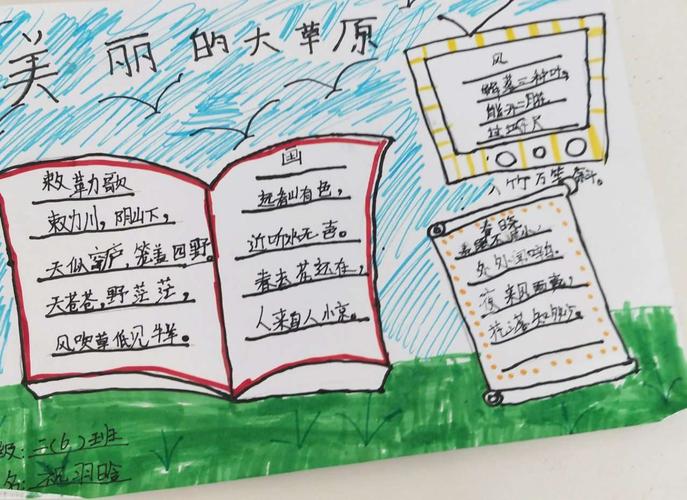 美丽的大草原
敕勒歌
敕力川，阴山下，
天似穹庐，笼盖四野。
天苍苍，野茫茫，
风吹草低见牛羊。
画
远看山有色，
近听水无声。
春去花还在，
人来
风
解落三
能开二月
过江千尺
入竹万竿斜。
春晓
处处闻啼
夜来风雨
花落知多少。
级：三(6)班
名：祝羽晗